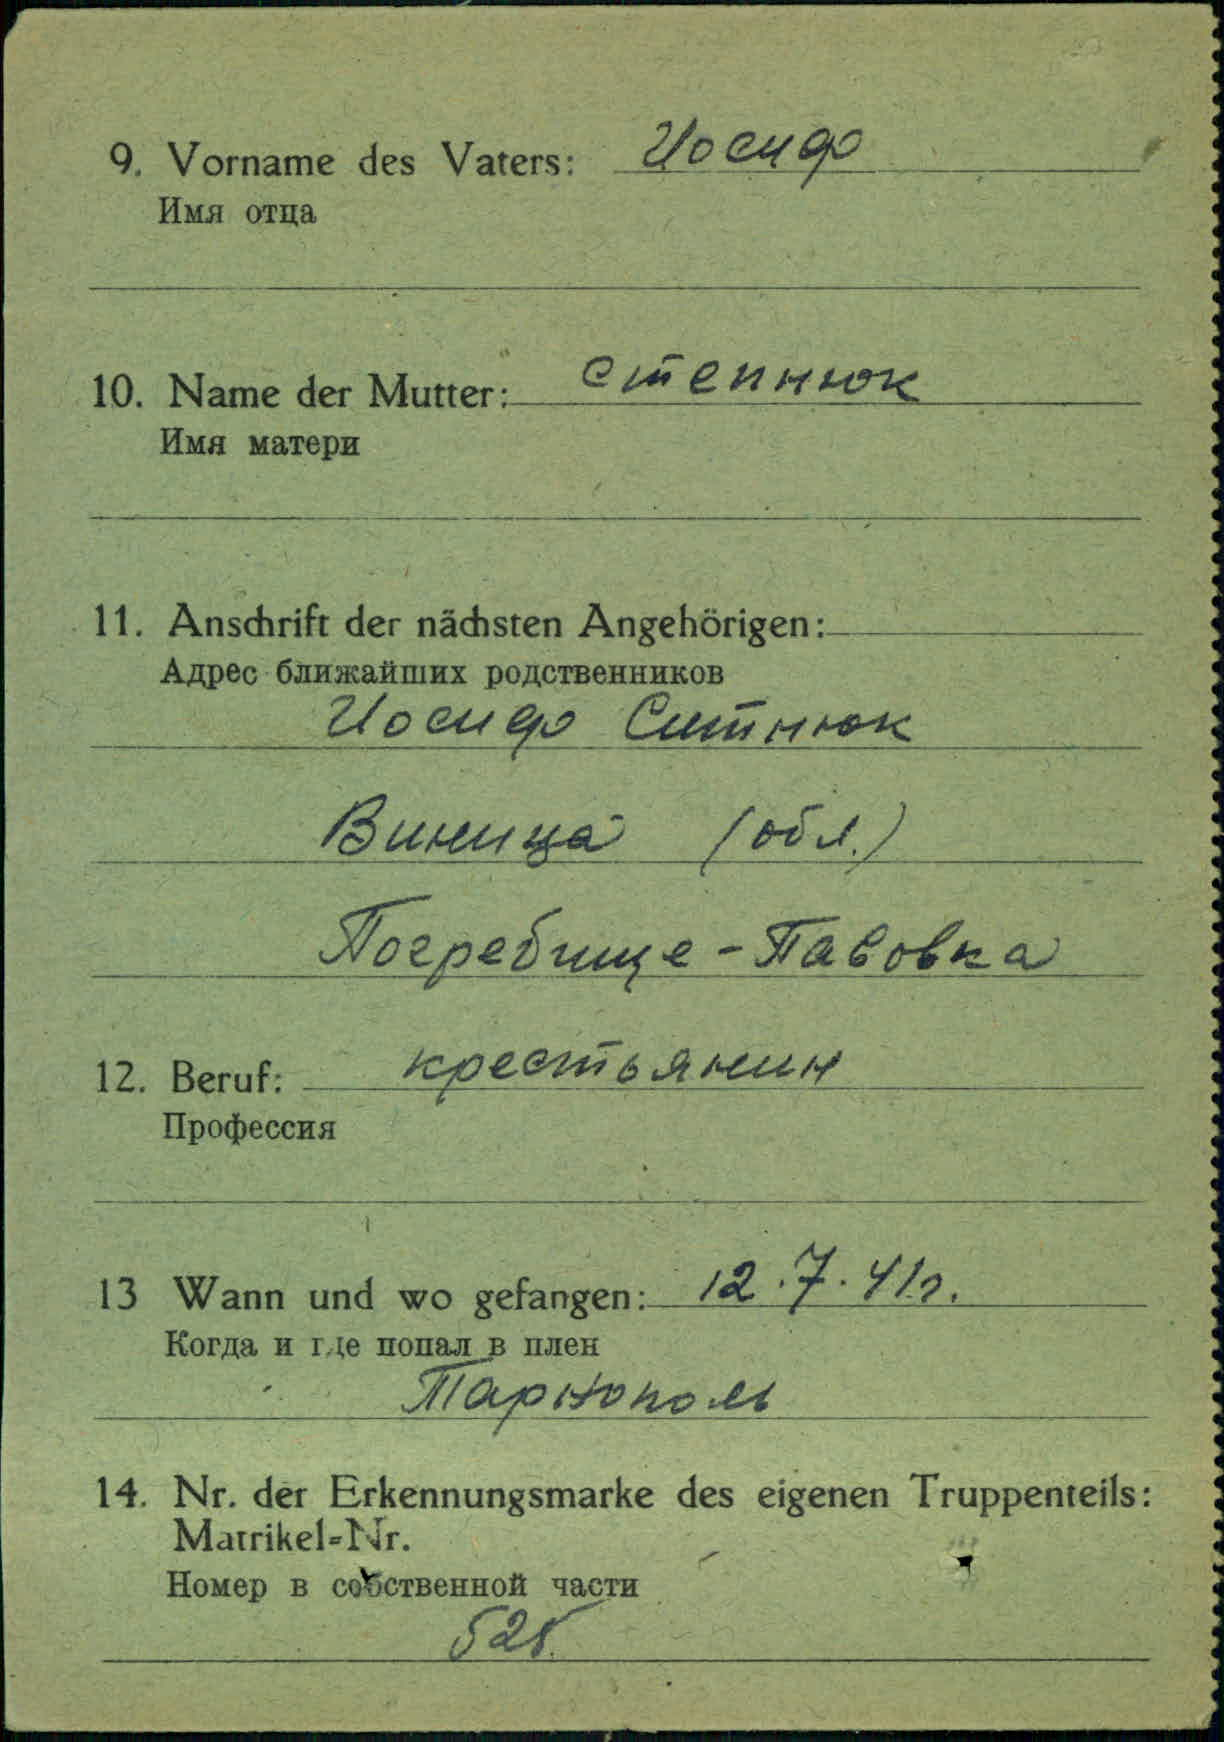 9. Vorname des Vaters: Иосиф
Имя отца
10. Name der Mutter: Степнюк
Имя матери
11. Anschrift der nächsten Angehörigen:
Адрес ближайших родственников
Иосиф Ситнюк
Виница (обл.)
Погребище - Павовка
12. Beruf: крестьянин
Профессия
13 Wann und wo gefangen: 12.7.41г.
Когда и где попал в плен
Тарнополь
14. Nr. der Erkennungsmarke des eigenen Truppenteils:
Matrikel-Nr.
Номер в собственной части
525.